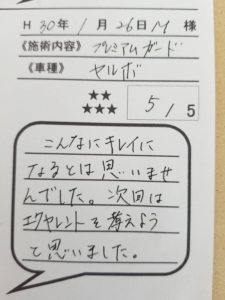 H 30年1月26日 M 様
《施術内容》プレミアムガード
《車種》ヤルボ
★★
★★★
5/5
こんなにキレイに
なるとは思いませ
んでした。次回は
エクセレントを考えよう
と思いました。